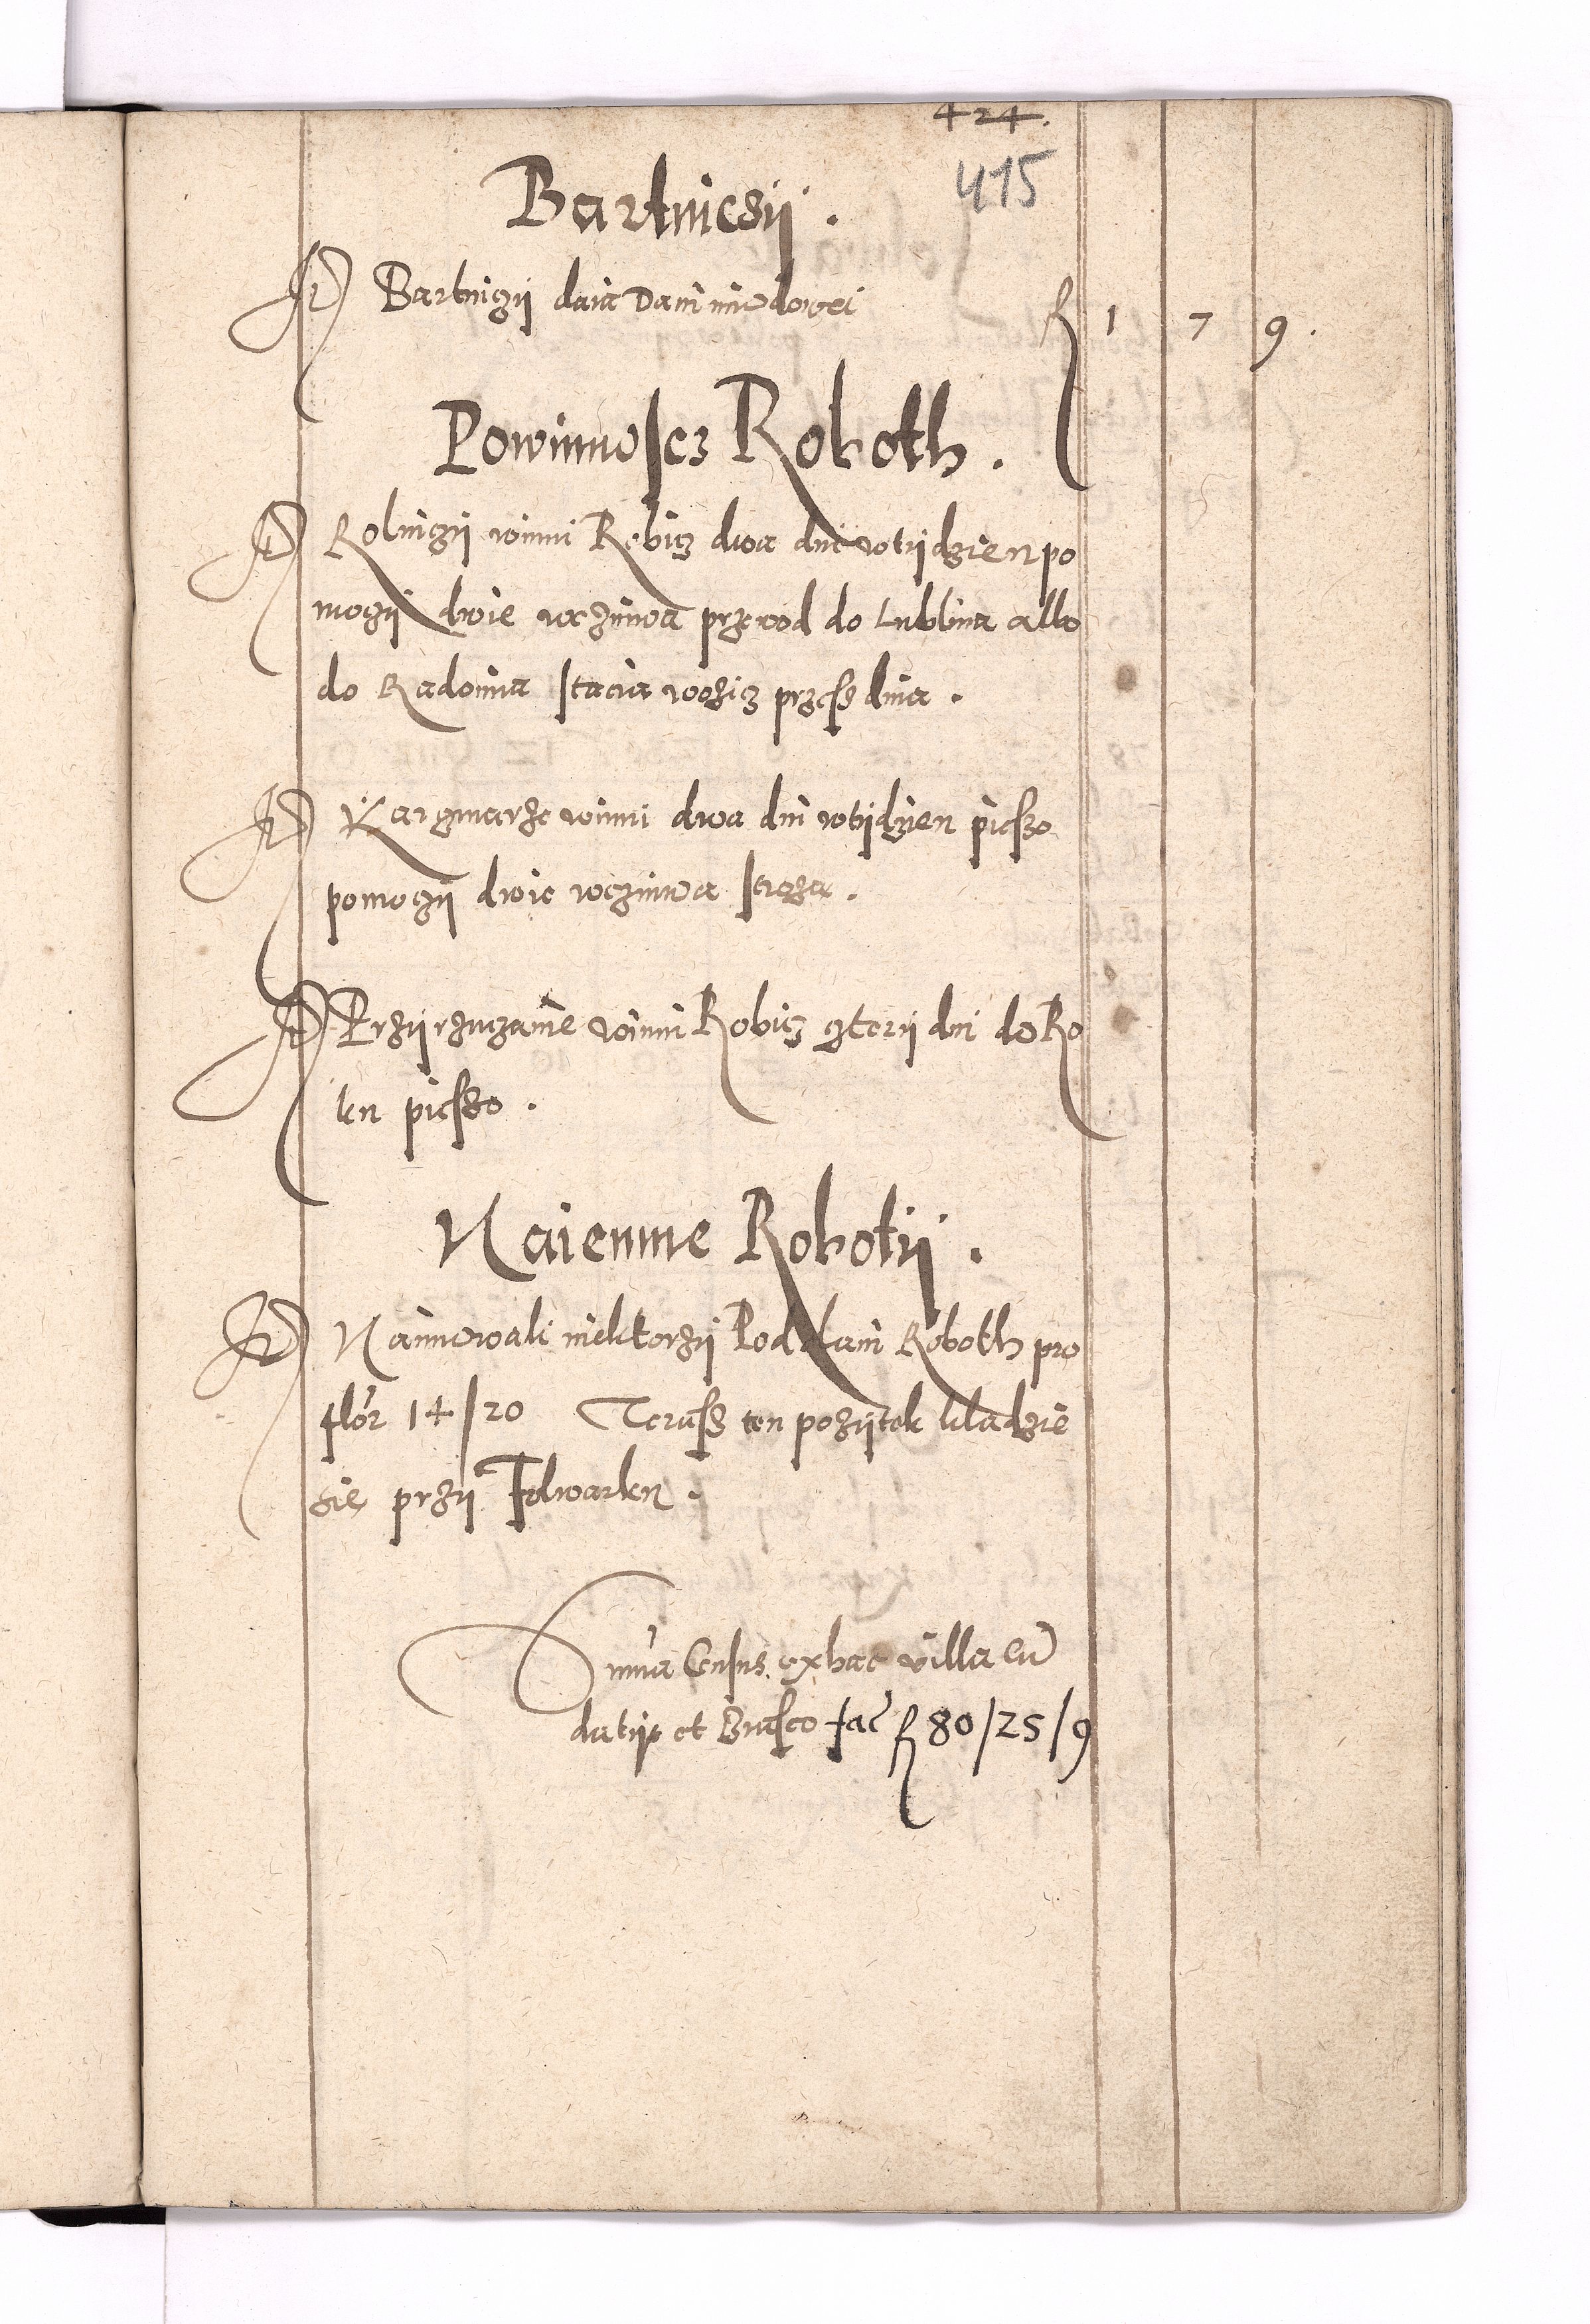 424.
415
Bartniczÿ .
Jt Bartniczÿ daia Dani miodowei fl 1 7 9 .
Powinnoscz Roboth .
Jt Rolniczÿ winni Robicz dwa dni wtÿdzien po
moczÿ dwie weznÿwa przewod do Lublina albo
do Radomia stacia wozicz przesz dnia .
Jt Karczmarze winni dwa dni wtÿdzien pieszo
pomoczÿ dwie weznÿwa stroza .
Jt Przÿrzuczanie winni Robicz czterÿ dni do Ro
ku pieszo .
Naiemne Robotÿ .
Jt Naimowali niektorzÿ Poddani Roboth pro
flor 14/20 Terasz ten pozÿtek kladzie
sie przÿ Folwarku .
Summa Census ex hac villa cum
datÿs et Brasco fac fl 80/25/9